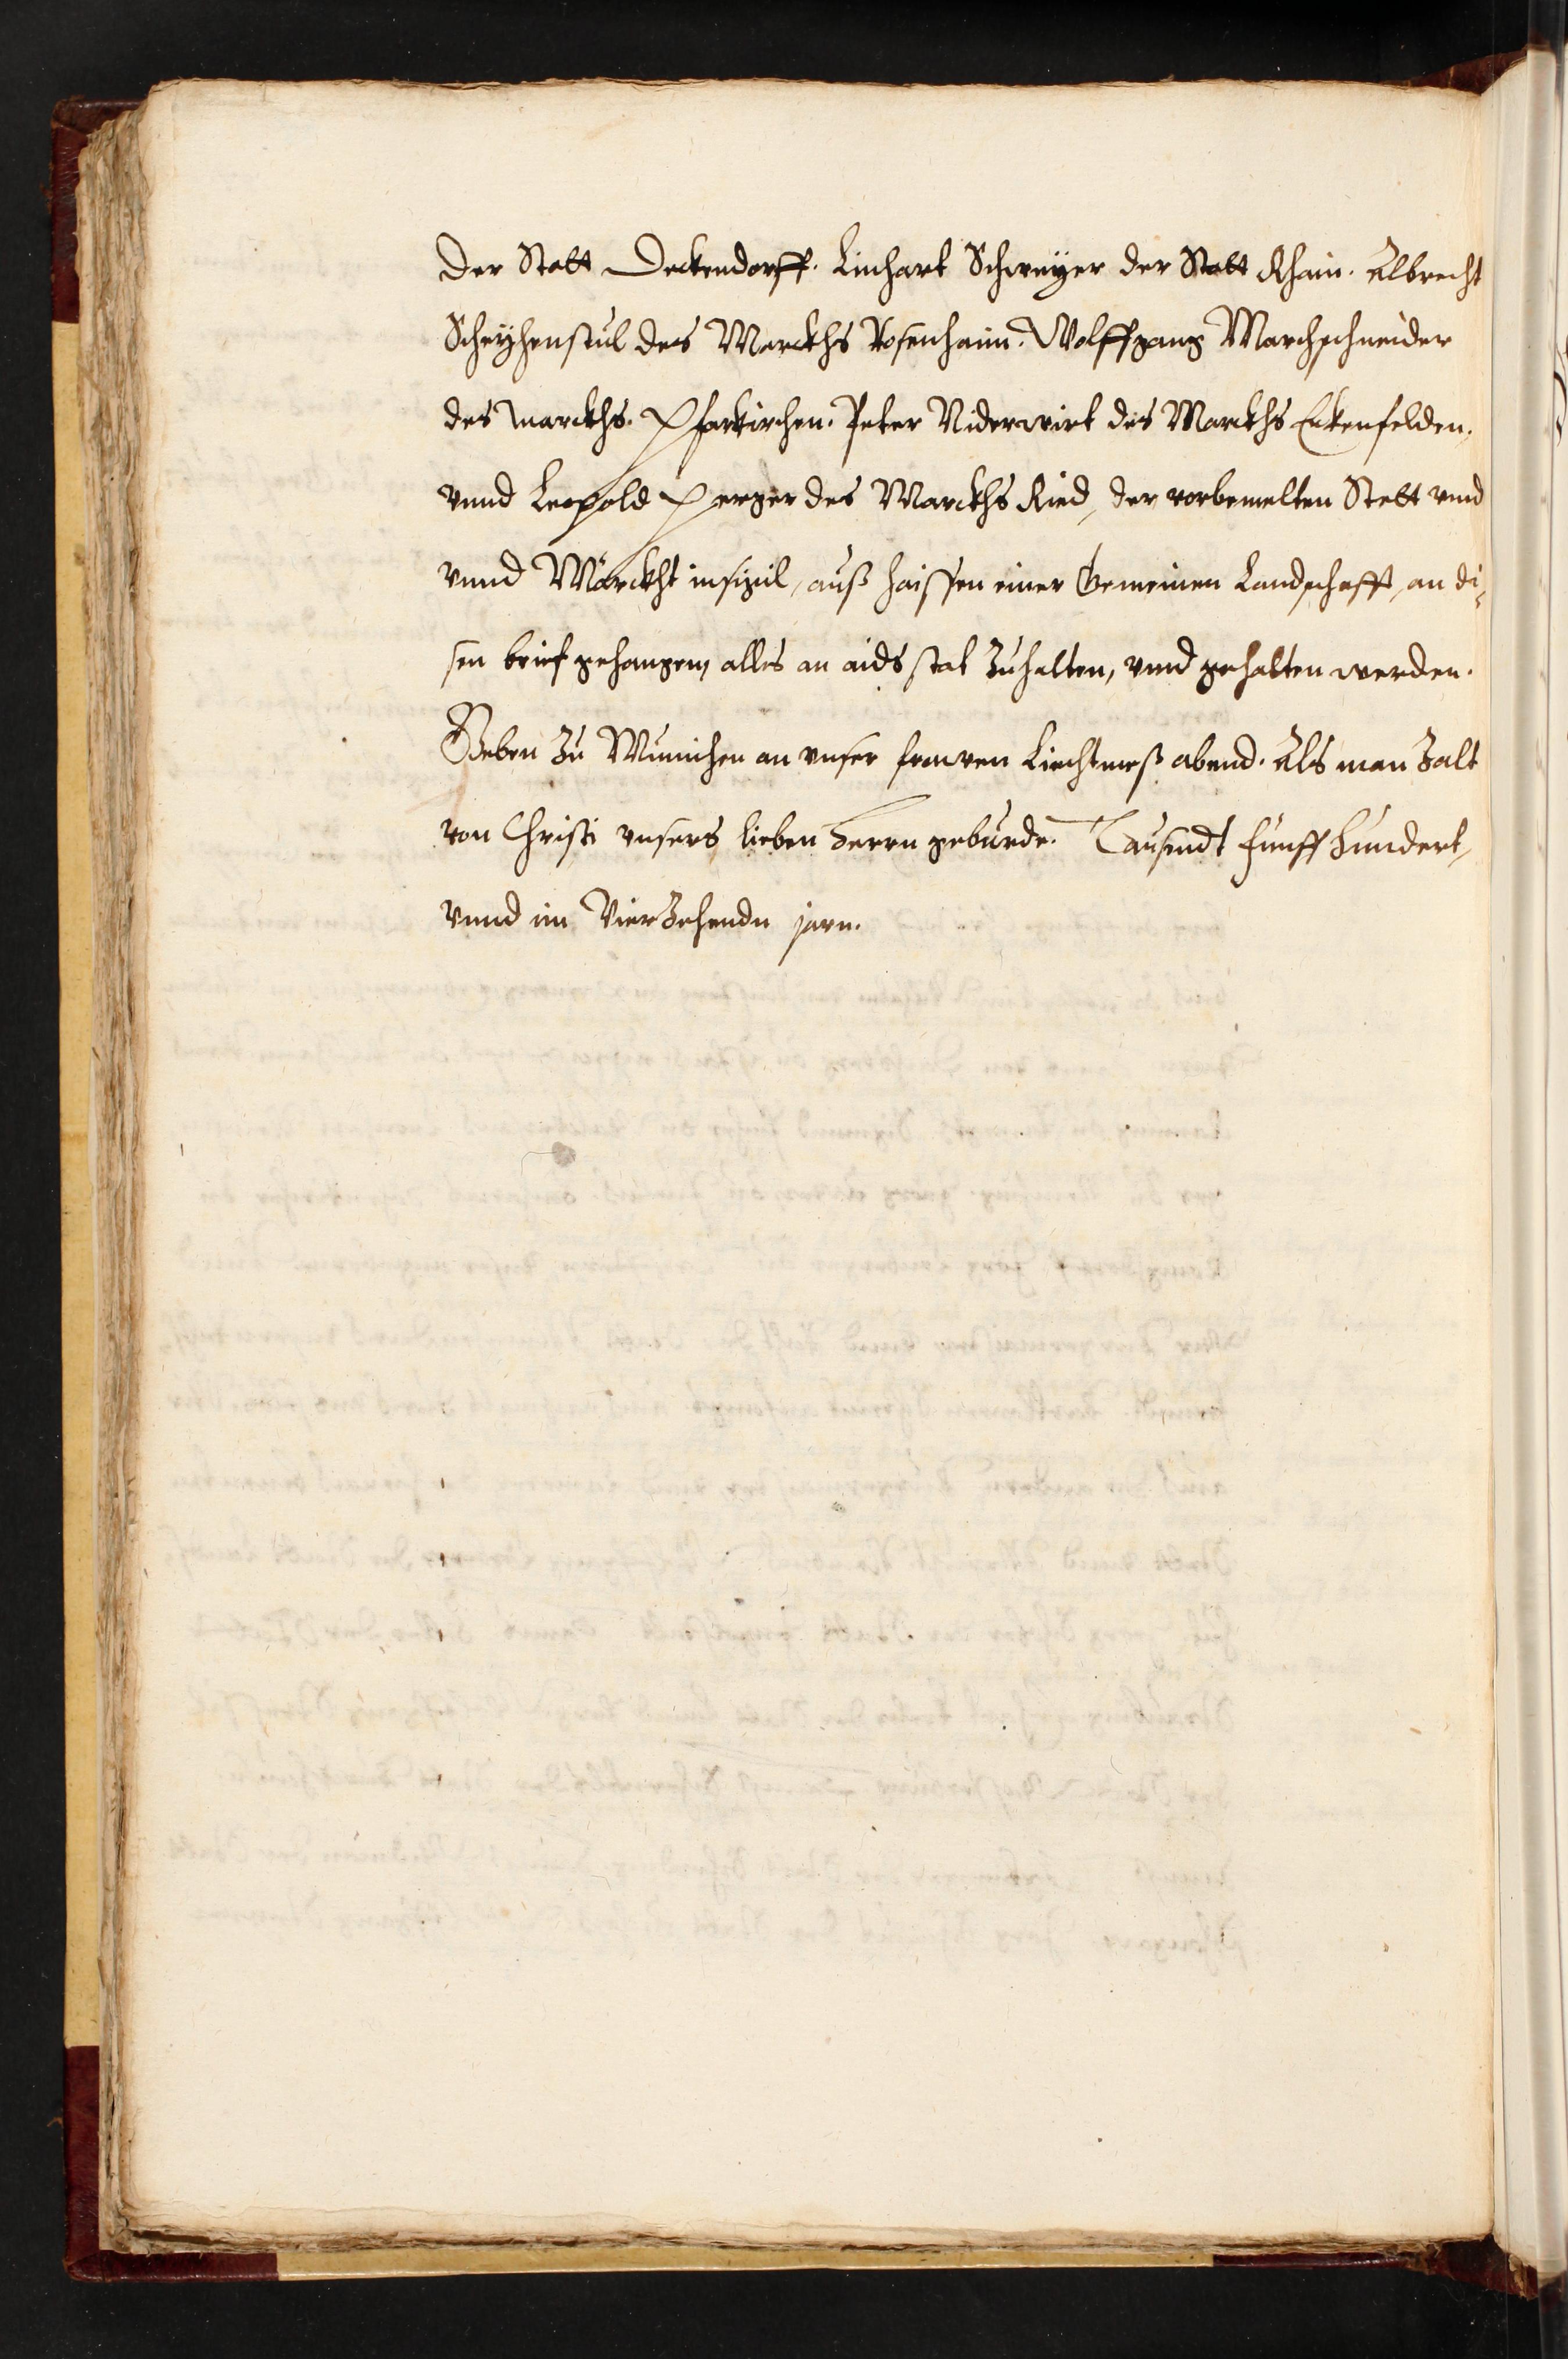 der Statt Deckendorff. Linhart Schweyer der Statt Rhain. Albrecht
Scheyhenstul des Marckhs Rosenhaim. Wolffgang Marchschneider
des marckhs. Pfarkirchen. Peter Niderwirt des Marckhs Eckenfelden.
vnnd Leopold Perger des Marckhs Ried, der vorbemelten Stett vnd
vnnd Märckht insigil, auß haissen einer Gemeinen Landschafft, an di-
sen brief gehangen, alles an aids stat zuhalten, vnnd gehalten werden.
Geben zu Munichen an vnser frawen Liechtmeß abend. Als man Zalt
von Christi vnsers lieben Herrn geburde. Tausendt funff Hundert,
vnnd im Vierzehendn jarn.